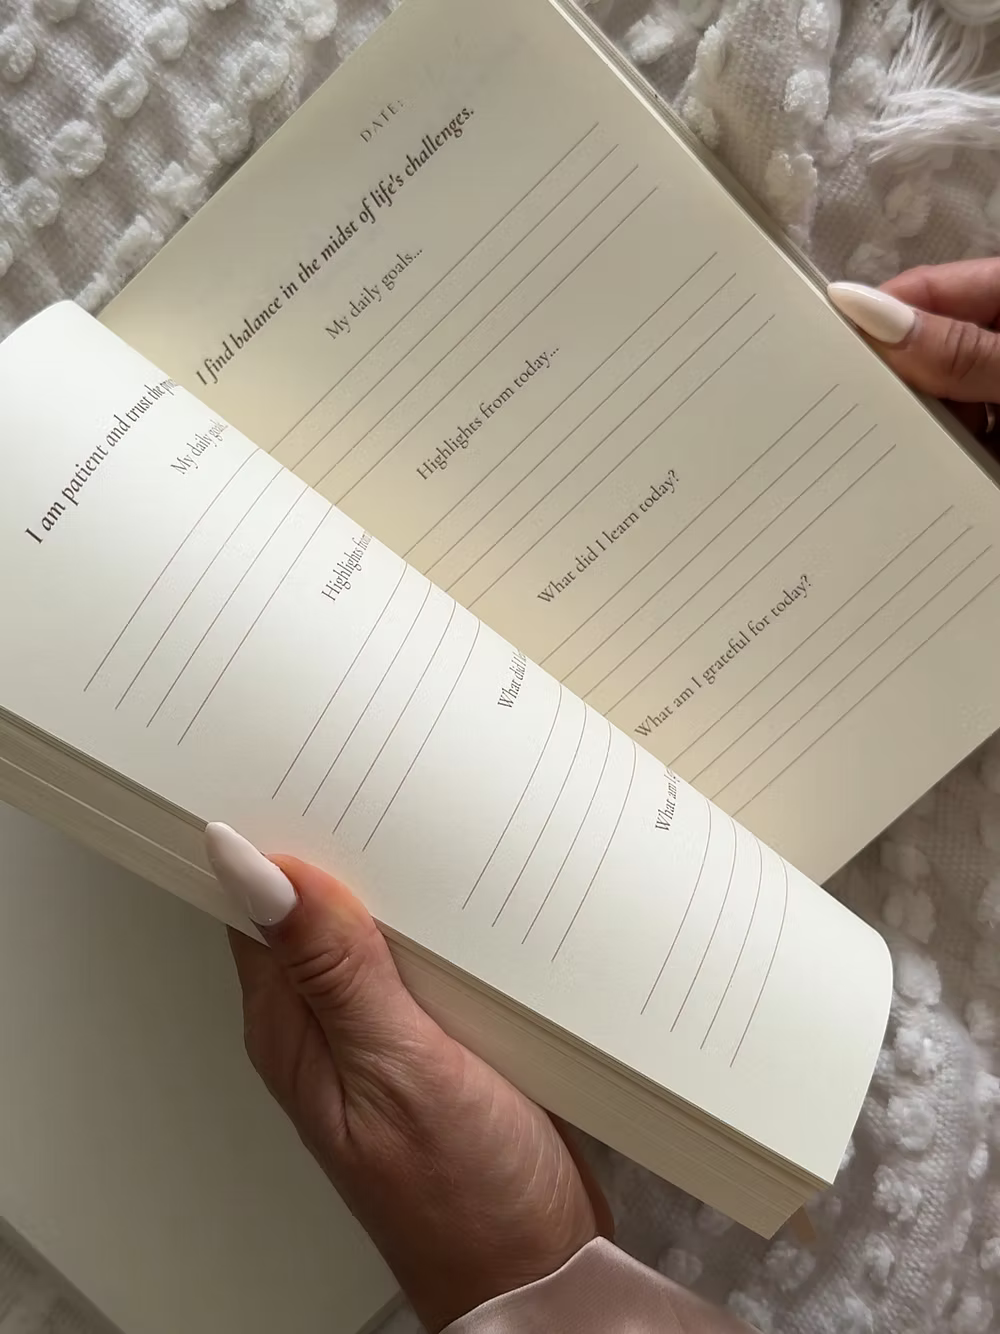 I am patient and trust the
My daily goals
Highlights
What did I
What am I
DATE:
I find balance in the midst of life's challenges.
My daily goals...
Highlights from today...
What did I learn today?
What am I grateful for today?